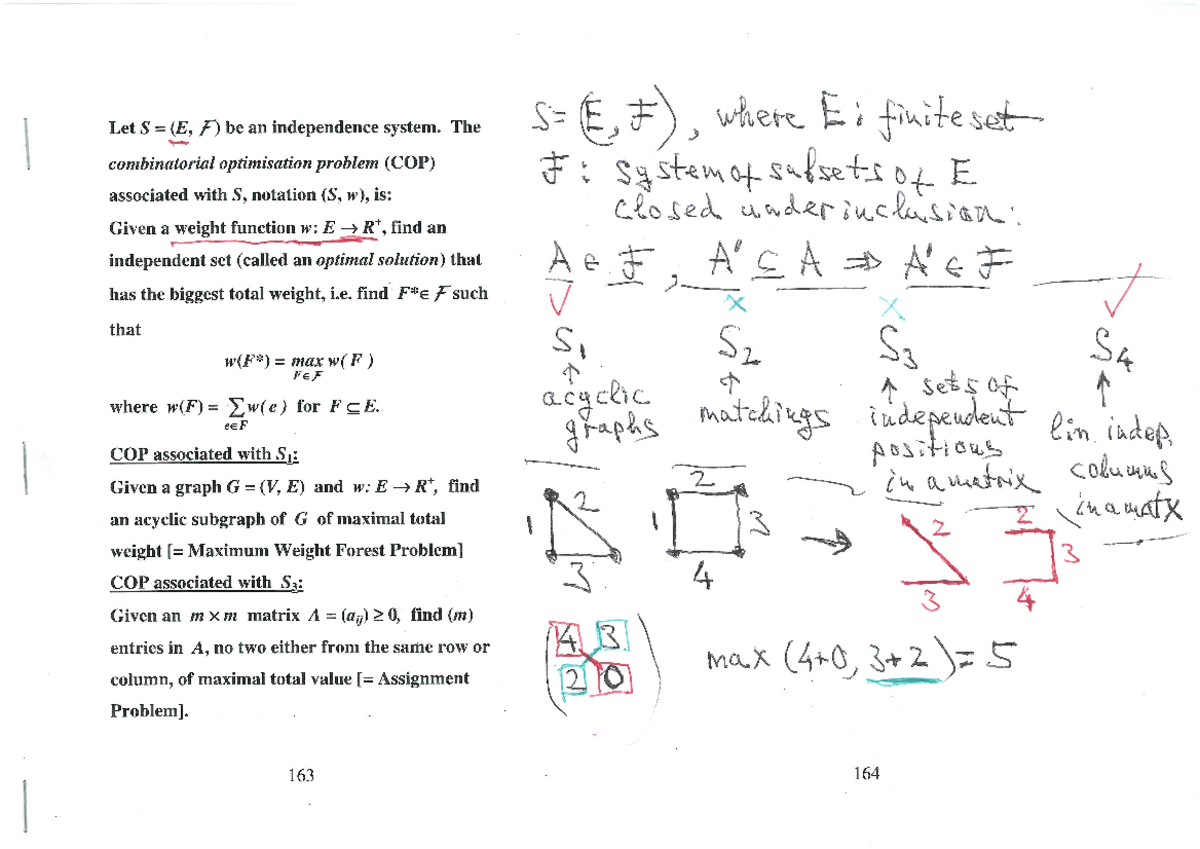 Let S = (E, F) be an independence system. The
combinatorial optimisation problem (COP)
associated with S, notation (S, w), is:
Given a weight function w: E → R⁺, find an
independent set (called an optimal solution) that
has the biggest total weight, i.e. find F*∈ F such
that
w(F*) = max w( F )
F∈F
where w(F) = ∑w( e ) for F ⊆ E.
e∈F
COP associated with S₁:
Given a graph G = (V, E) and w: E → R⁺, find
an acyclic subgraph of G of maximal total
weight [= Maximum Weight Forest Problem]
COP associated with S₃:
Given an m × m matrix A = (aᵢⱼ) ≥ 0, find (m)
entries in A, no two either from the same row or
column, of maximal total value [= Assignment
Problem].
163
S = (E, F), where E : finite set
F : system of subsets of E
closed under inclusion:
A ∈ F, A' ⊆ A ⇒ A' ∈ F
✓ × × ✓
S₁ S₂ S₃ S₄
↑ ↑ ↑ ↑
acyclic graphs
matchings
sets of
independent
positions
in a matrix
lin. indep.
columns
in a matx
1 2 3
2 1 3 4
→
2 3
2 3 4
4 3
2 0
max (4+0, 3+2) = 5
164